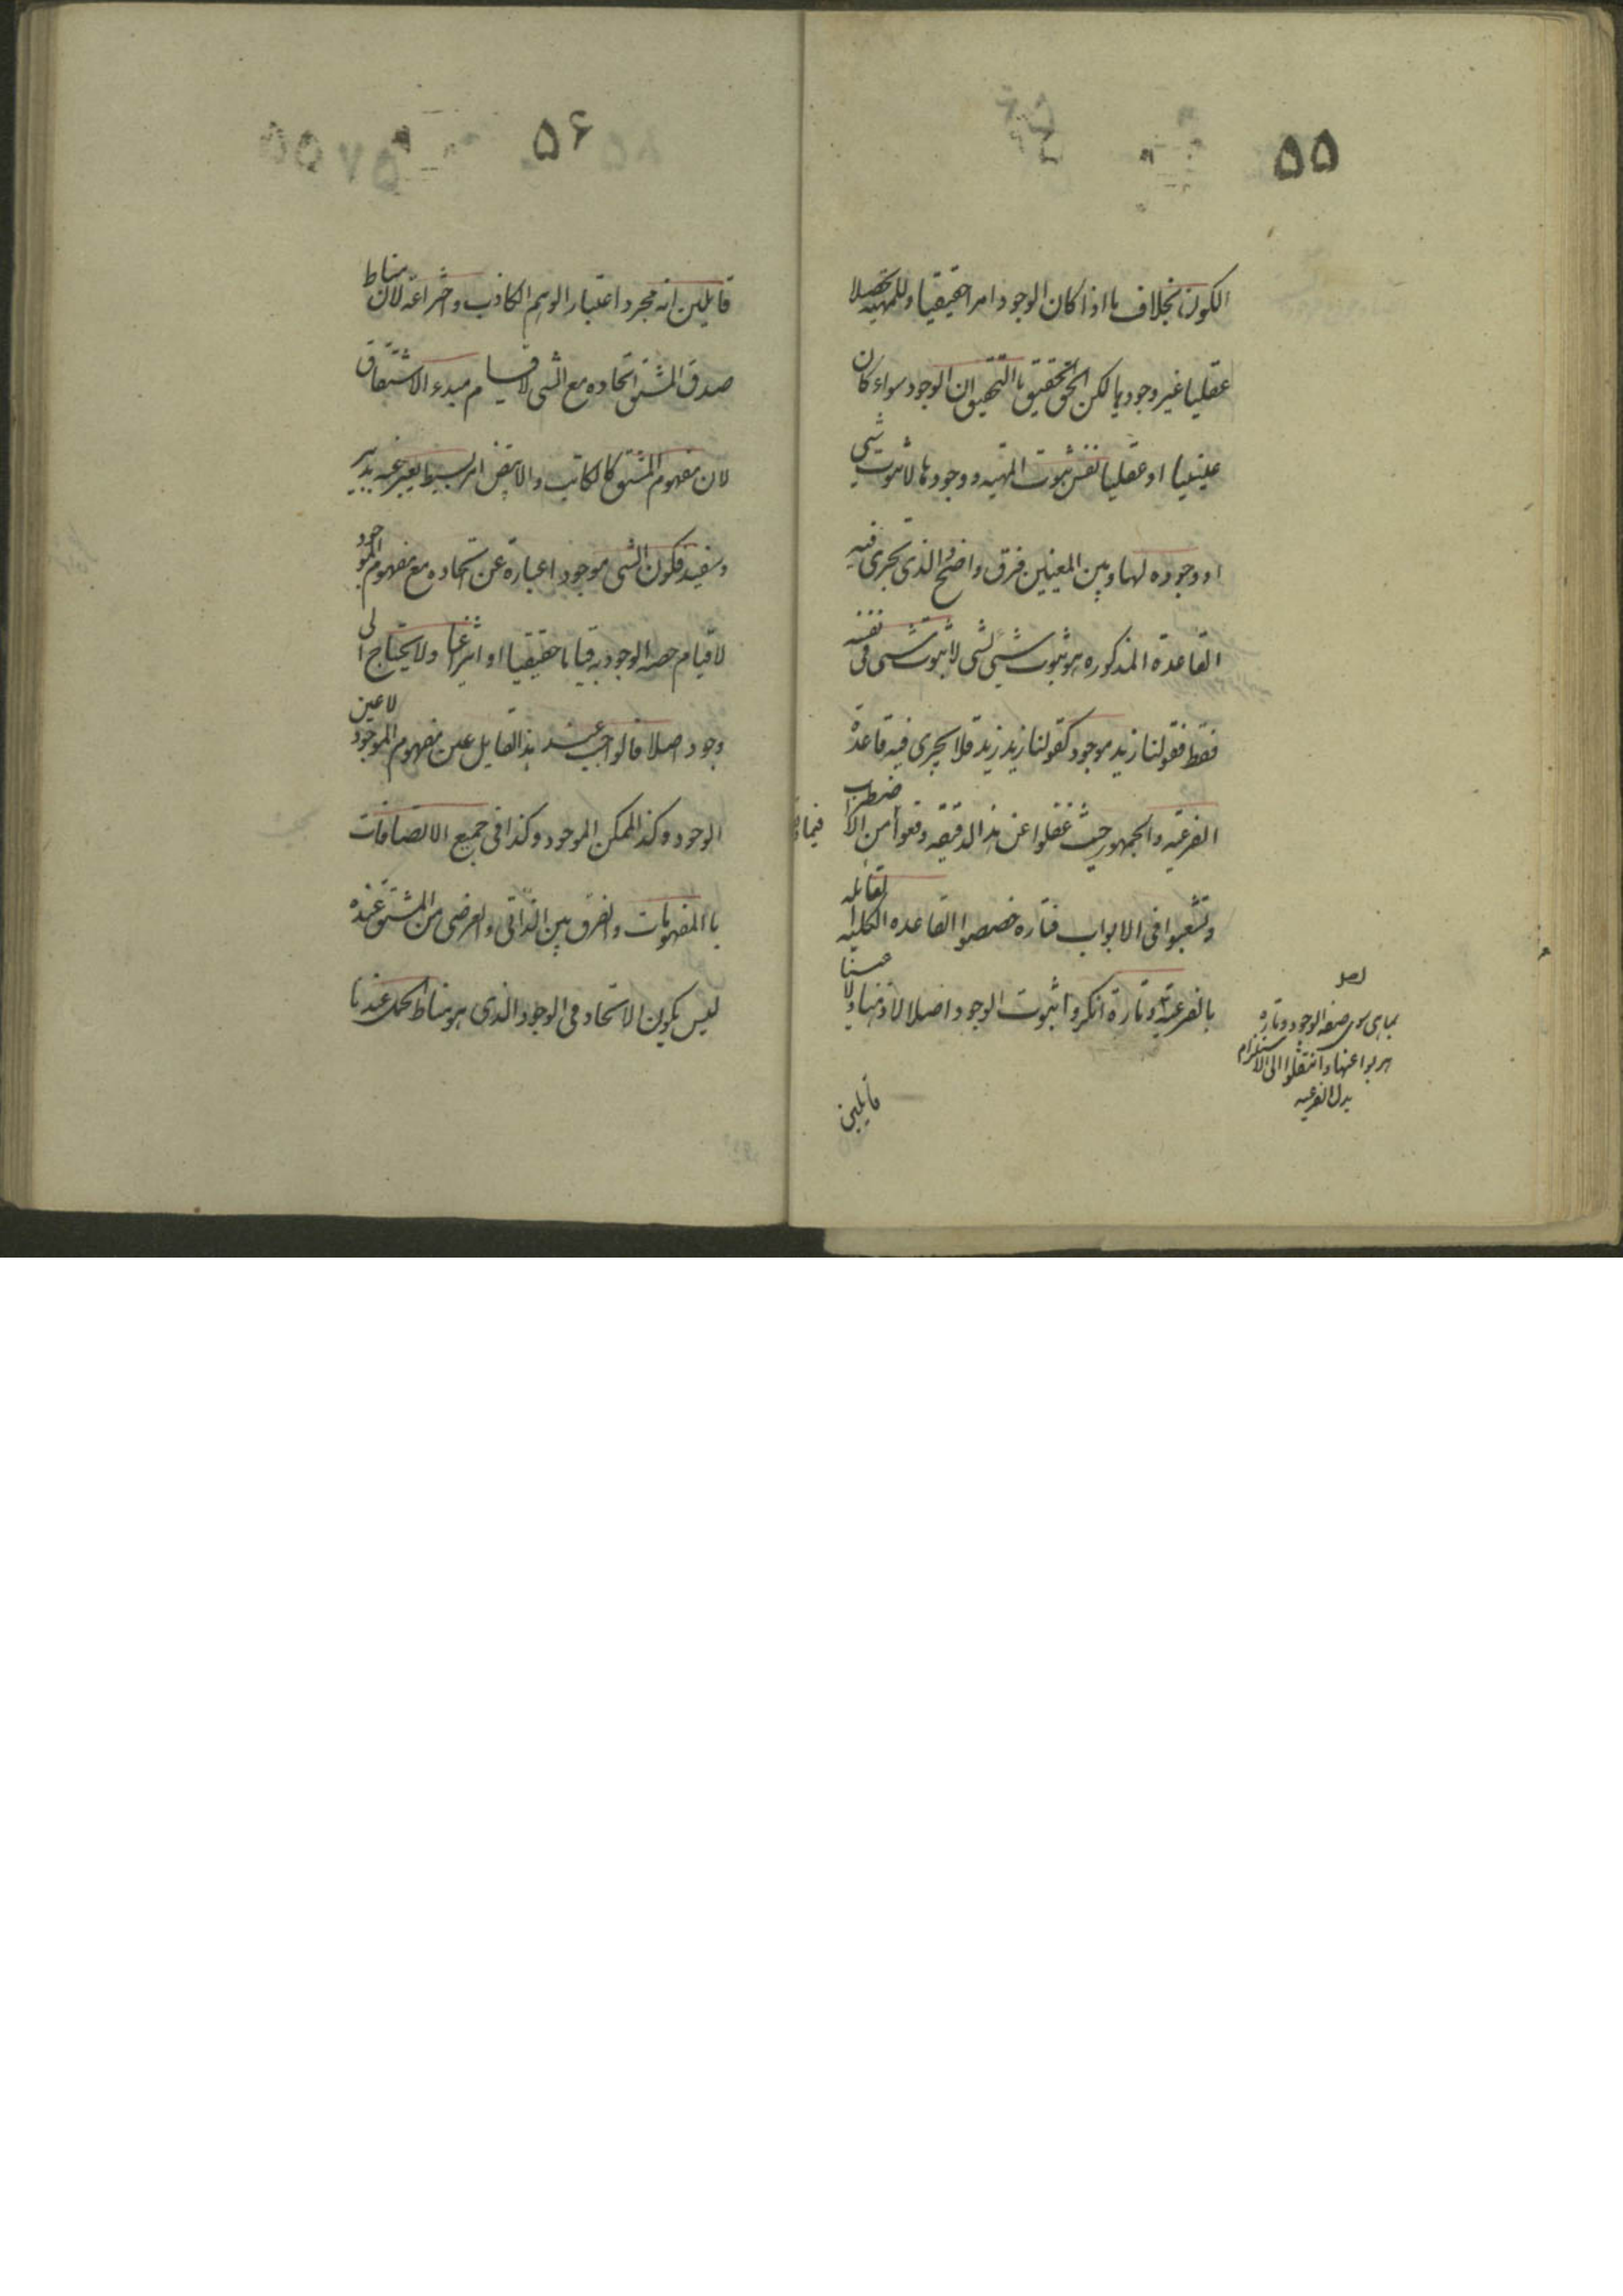 ٥٥
الكون بخلاف ما اذا كان الوجود امرا حقيقيا وللمهية تحصلا
عقليا غير وجودها لكن الحق الحقيق بالتحقيق ان الوجود سواء كان
عينيا او عقليا نفس ثبوت المهيه و وجودها لا ثبوت شي
او وجوده لها و بين المعنيين فرق واضح و الذي تجرى فيه
القاعدة المذكوره هو ثبوت شيئ لشي لا ثبوت شي في نفسه
فقط فقولنا زيد موجود كقولنا زيد زيد فلا يجرى فيه قاعدة
الفرعيه و الجمهور حيث غفلوا عن هذا الدقيقه وقعوا من الاضطراب فيما
و تشعبوا في الابواب فتاره خصصوا القاعده الكليه القائله
بالفرعية و تارة انكروا ثبوت الوجود اصلا لا ذهنا و لا عينا
بما هى سوى صفه الوجود و تاره
هربوا عنها و انتقلوا الى الاستلزام
بدل الفرعيه
قايلين
٥۶
قايلين انه مجرد اعتبار الوهم الكاذب و اختراعه لان مناط
صدق المشتق اتحاده مع الشي لا قيام مبدء الاشتقاق
لان مفهوم المشتق كالكاتب و الابيض امر بسيط يعبر عنه بدبير
و سفيد فكون الشى موجودا عبارة عن اتحاده مع مفهوم الموجود
لا قيام حصه الوجود به قياما حقيقيا او انتزاعيا و لا يحتاج الى
وجود اصلا فالواجب عند هذا القايل عين مفهوم الموجود لا عين
الوجود و كذا الممكن الموجود و كذا في جميع الاتصافات
با المفهومات و الفرق بين الذاتى و العرضى من المشتق عنده
ليس بكون الاتحاد فى الوجود الذى هو مناط الحمل عندنا